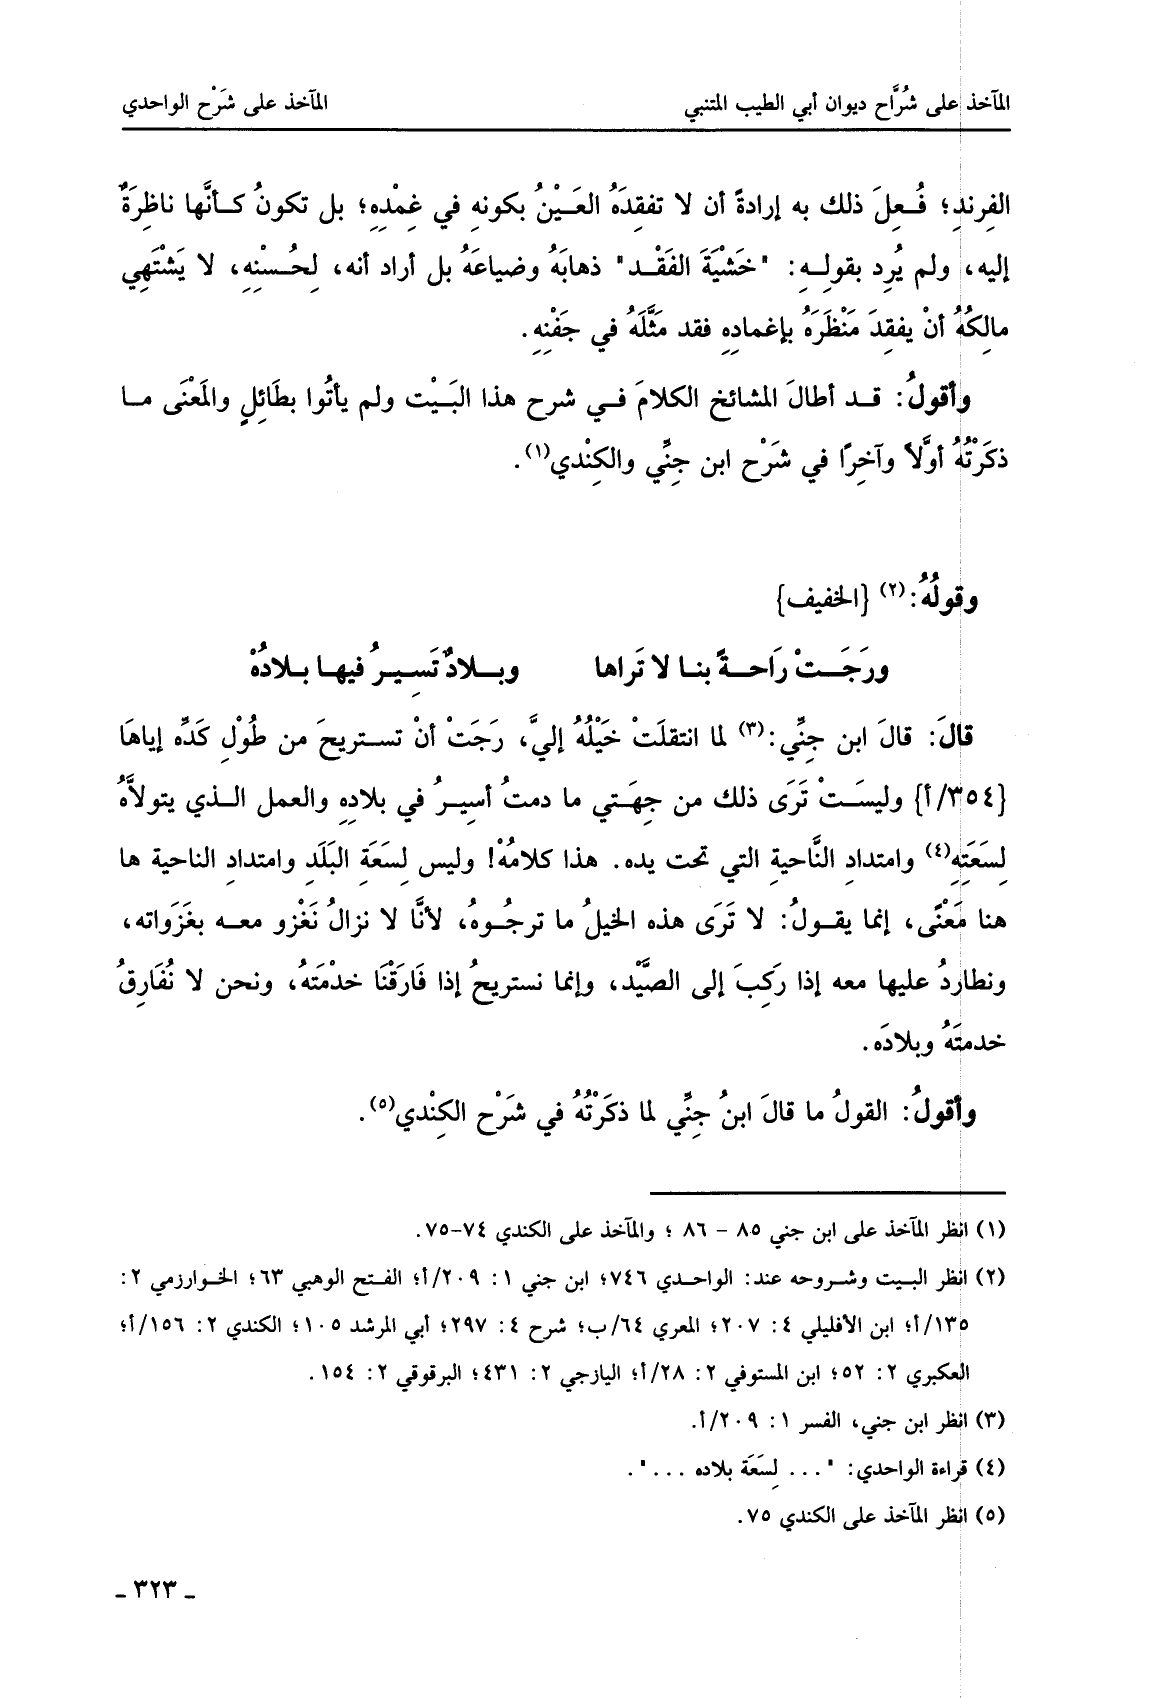 المآخذ على شُرَّاح ديوان أبي الطيب المتنبي المآخذ على شَرْح الواحدي
الفِرِندِ؛ فُعِلَ ذلك به إرادةً أن لا تفقِدَهُ العَيْنُ بكونهِ في غِمْدِهِ؛ بل تكونُ كأنَّها ناظِرَةٌ
إليه، ولم يُرِد بقولِهِ: "خَشْيَةَ الفَقْد" ذهابَهُ وضياعَهُ بل أراد أنه، لِحُسْنِهِ، لا يَشْتَهِي
مالِكُهُ أنْ يفقِدَ مَنْظَرَهُ بإغمادِهِ فقد مَثَّلَهُ في جَفْنِهِ.
وأقولُ: قد أطالَ المشائخ الكلامَ في شرح هذا البَيْت ولم يأتُوا بطَائِلٍ والمَعْنَى ما
ذكَرْتُهُ أوَّلاً وآخِرًا في شَرْح ابن جنِّي والكِنْدي(١).
وقولُهُ:(٢) {الخفيف}
ورَجَتْ رَاحةً بنا لا تَراها وبلادٌ تَسِيرُ فيها بلادُهْ
قالَ: قالَ ابن جنِّي:(٣) لما انتقلَتْ خَيْلُهُ إليَّ، رَجَتْ أنْ تستريحَ من طُوْلِ كَدِّه إياهَا
{٣٥٤/أ} وليسَتْ تَرَى ذلك من جِهَتي ما دمتُ أسيرُ في بلادِهِ والعمل الذي يتولاَّهُ
لِسَعَتِهِ(٤) وامتدادِ النَّاحيةِ التي تحت يده. هذا كلامُهُ! وليس لِسَعَةِ البَلَدِ وامتدادِ الناحية ها
هنا مَعْنًى، إنما يقولُ: لا تَرَى هذه الخيلُ ما ترجُوهُ، لأنَّا لا نزالُ نَغْزو معه بغَزَواته،
ونطارِدُ عليها معه إذا رَكِبَ إلى الصَّيْد، وإنما نستريحُ إذا فَارَقْنَا خدْمَتَهُ، ونحن لا نُفَارِقُ
خدمتَهُ وبلادَه.
وأقولُ: القولُ ما قالَ ابنُ جنِّي لما ذكَرْتُهُ في شَرْح الكِنْدي(٥).
(١) انظر المآخذ على ابن جني ٨٥ - ٨٦ ؛ والمآخذ على الكندي ٧٤-٧٥.
(٢) انظر البيت وشروحه عند: الواحدي ٧٤٦؛ ابن جني ١: ٢٠٩/أ؛ الفتح الوهبي ٦٣؛ الخوارزمي ٢:
١٣٥/أ؛ ابن الأفليلي ٤: ٢٠٧؛ المعري ٦٤/ب؛ شرح ٤: ٢٩٧؛ أبي المرشد ١٠٥؛ الكندي ٢: ١٥٦/أ؛
العكبري ٢: ٥٢؛ ابن المستوفي ٢: ٢٨/أ؛ اليازجي ٢: ٤٣١؛ البرقوقي ٢: ١٥٤.
(٣) انظر ابن جني، الفسر ١: ٢٠٩/أ.
(٤) قراءة الواحدي: "... لِسَعَة بلاده ...".
(٥) انظر المآخذ على الكندي ٧٥.
ـ ٣٢٣ ـ